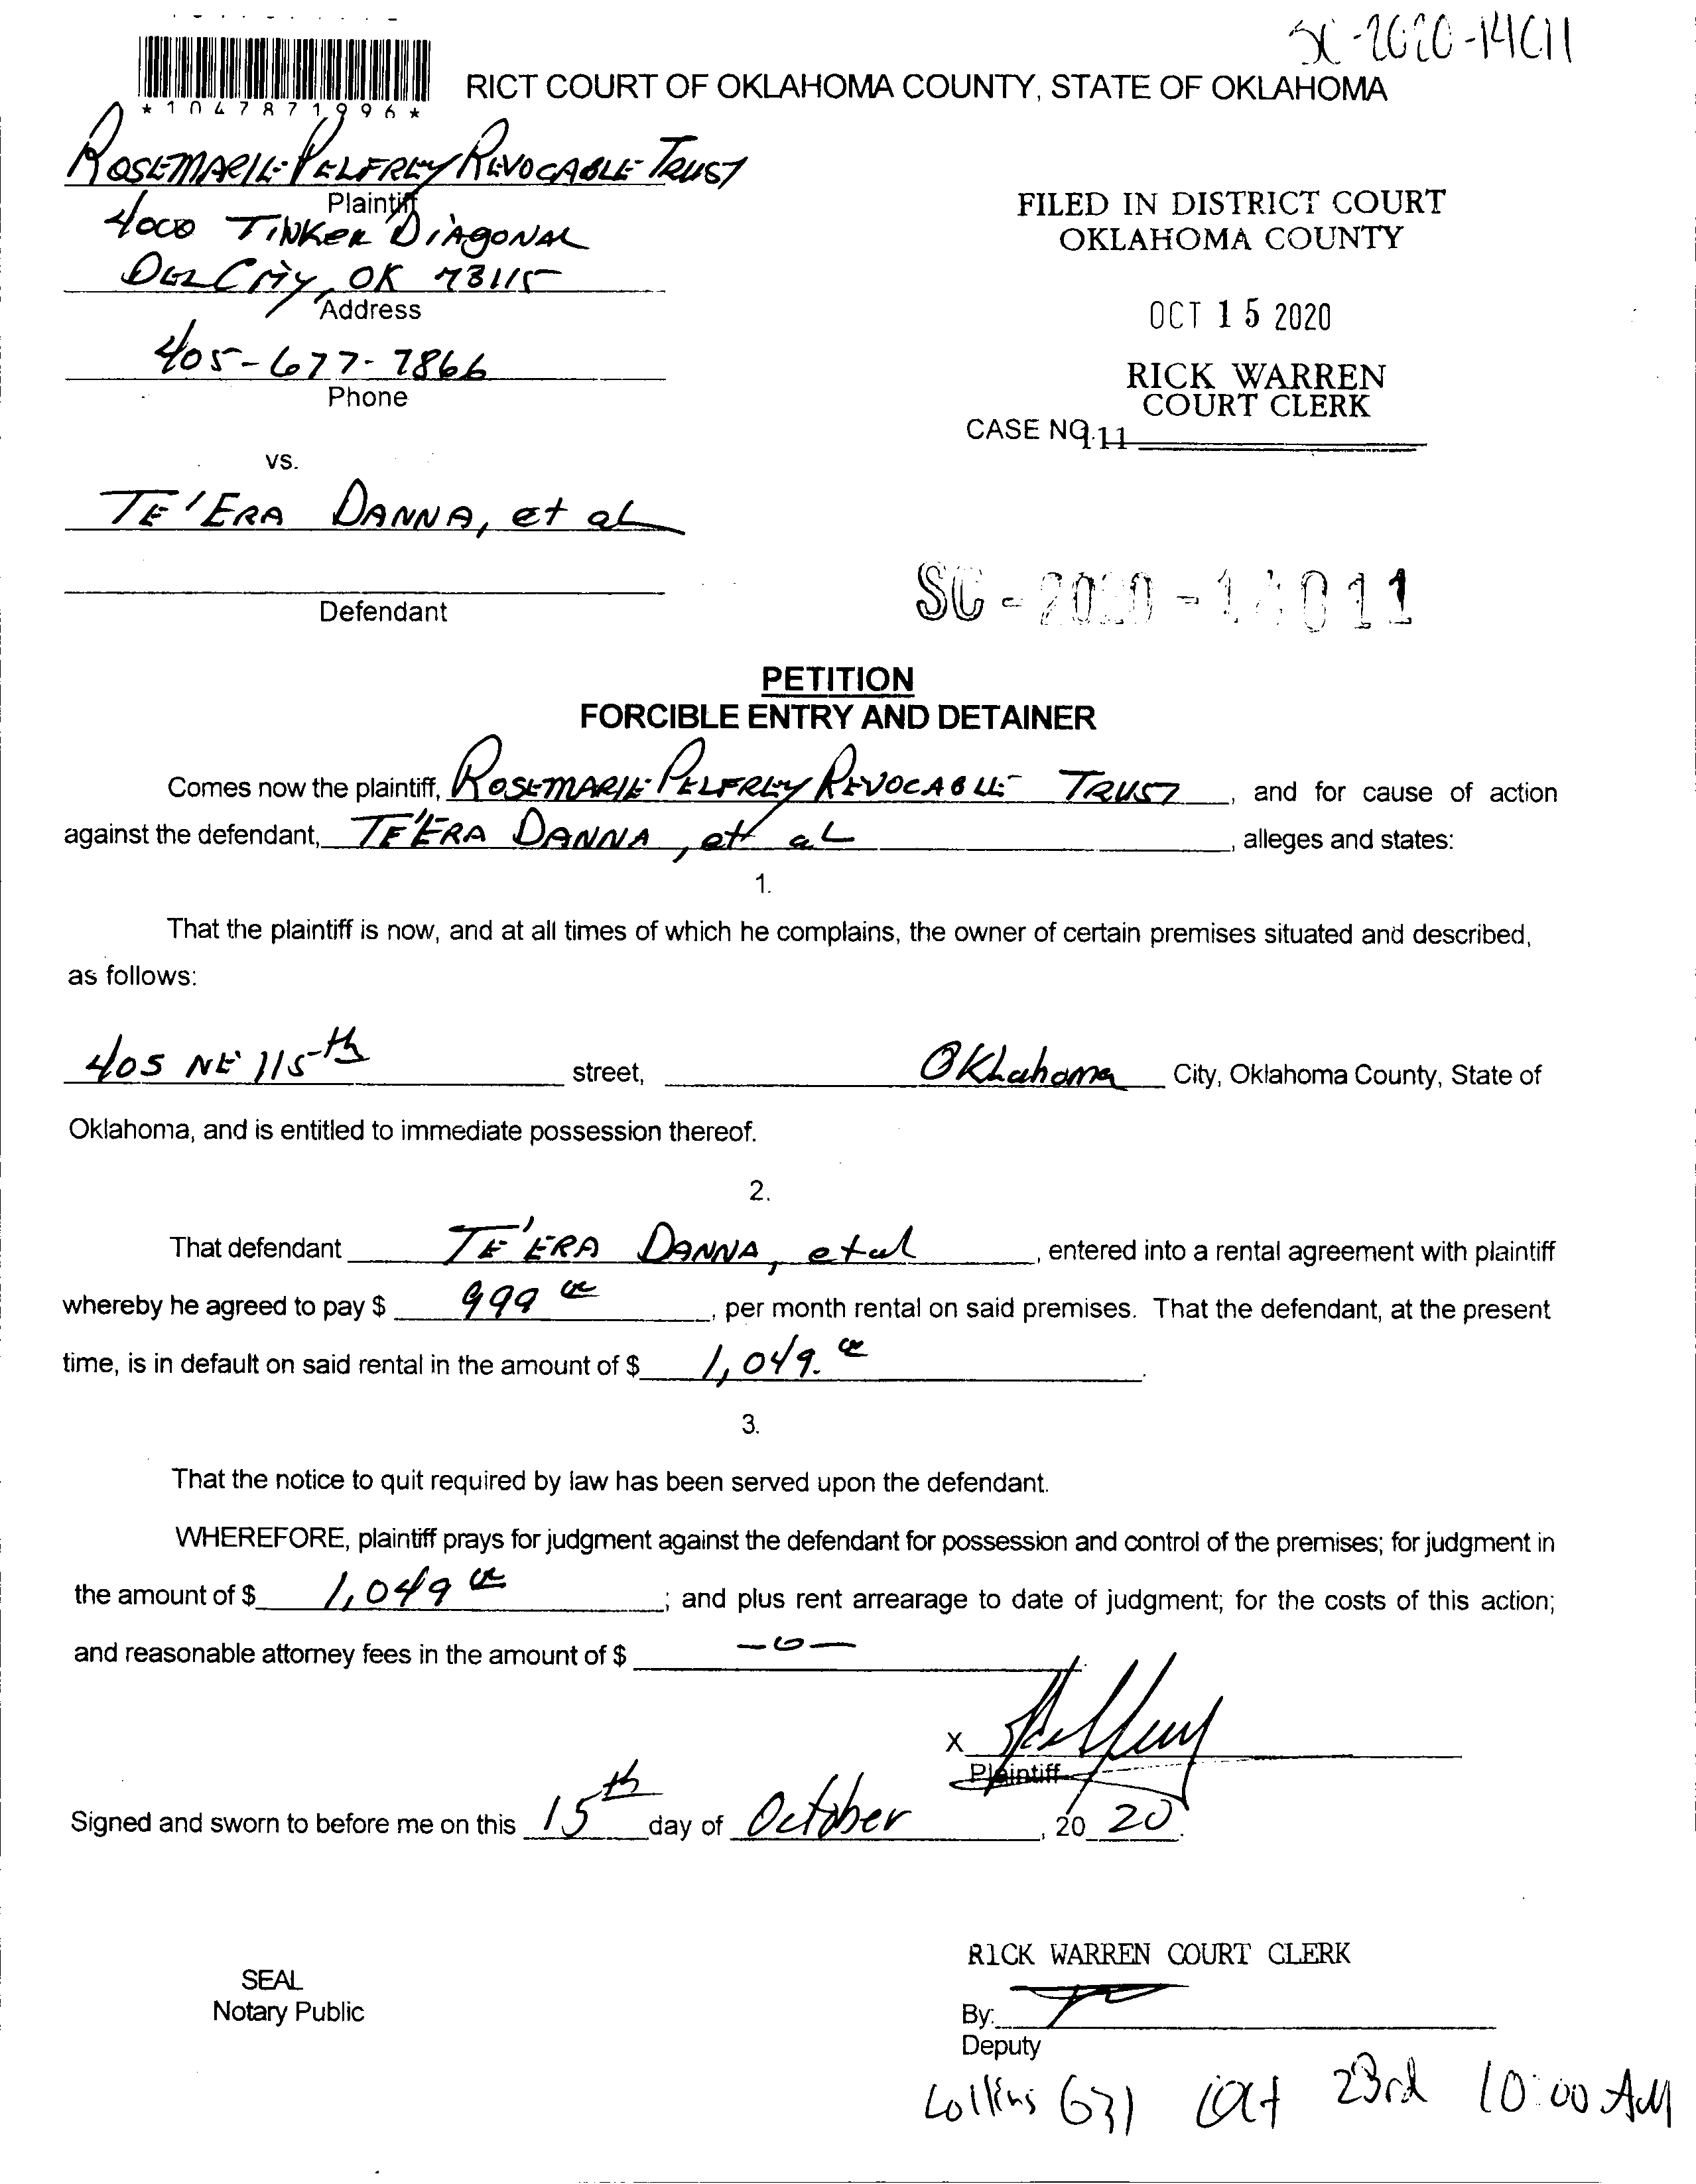 SC-2020-14011
*1047871996*
RICT COURT OF OKLAHOMA COUNTY, STATE OF OKLAHOMA
ROSEMARIE PELFREY REVOCABLE TRUST
Plaintiff
4000 TINKER DIAGONAL
DEL CITY, OK 73115
Address
405-677-7866
Phone
FILED IN DISTRICT COURT
OKLAHOMA COUNTY
OCT 15 2020
RICK WARREN
COURT CLERK
CASE NO.
111
vs.
TE'ERA DANNA, et al
Defendant
SC-2020-14011
PETITION
FORCIBLE ENTRY AND DETAINER
Comes now the plaintiff, ROSEMARIE PELFREY REVOCABLE TRUST, and for cause of action
against the defendant, TE'ERA DANNA, et al, alleges and states:
1.
That the plaintiff is now, and at all times of which he complains, the owner of certain premises situated and described,
as follows:
405 NE 115th street, Oklahoma City, Oklahoma County, State of
Oklahoma, and is entitled to immediate possession thereof.
2.
That defendant TE'ERA DANNA, et al, entered into a rental agreement with plaintiff
whereby he agreed to pay $ 999 00, per month rental on said premises. That the defendant, at the present
time, is in default on said rental in the amount of $ 1,049.00.
3.
That the notice to quit required by law has been served upon the defendant.
WHEREFORE, plaintiff prays for judgment against the defendant for possession and control of the premises; for judgment in
the amount of $ 1,049 00; and plus rent arrearage to date of judgment; for the costs of this action;
and reasonable attorney fees in the amount of $ -0-
X
Plaintiff
Signed and sworn to before me on this 15th day of October, 20 20.
RICK WARREN COURT CLERK
SEAL
Notary Public
By:
Deputy
Collins (631) Oct 23rd 10:00 AM